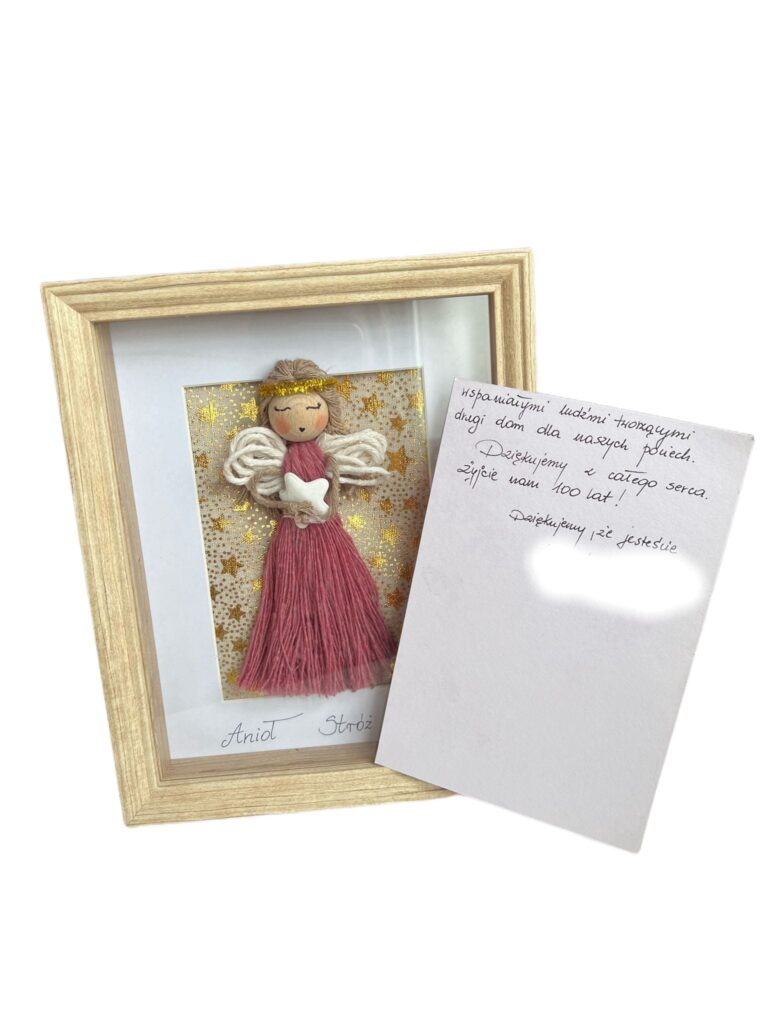 Anioł Stróż
wspaniałymi ludźmi tworzącymi
drugi dom dla naszych pociech.
Dziękujemy z całego serca.
Żyjcie nam 100 lat!
Dziękujemy, że jesteście